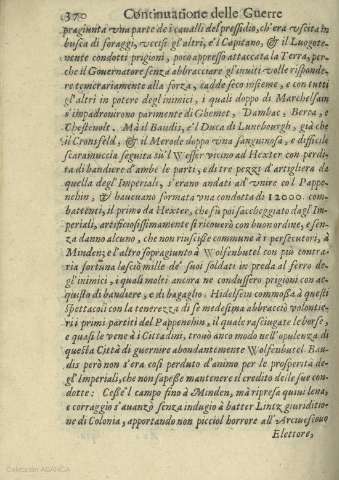 370 Continuatione delle Guerre
pragiunta vna parte de i caualli del pressidio, ch'era vscita in
busca di foraggi, vecise gl'altri, e'l Capitano, & il Luogote-
nente condotti prigioni, poco appresso attaccata la Terra, per-
che il Gouernatore senza abbracciare gl'inuiti volle risponde-
re temerariamente alla forza, cadde seco insieme, e con tutti
gl'altri in potere degl'inimici, i quali doppo di Marchelsain
s'impadronirono parimente di Ghemet, Dambac, Berca, e
Chestenolt. Mà il Baudis, e'l Duca di Lunebourgh, già che
il Cronsfeld, & il Merode doppo vna sanguinosa, e difficile
scaramuccia seguita sù'l Wesser vicino ad Hexter con perdi-
ta di bandiere d'ambe le parti, e di tre pezzi di artiglieria da
quella degl'Imperiali, s'erano andati ad vnire col Pappe-
nehin, & haueuano formata vna condotta di 12000. com-
batenti, il primo da Hexter, che fù poi saccheggiato dagl'Im-
periali, artificiosissimamente si ricouerò con buon ordine, e sen-
za danno alcuno, che non riuscisse commune à i persecutori, à
Minden; e l'altro sopragiunto à Wolfenbutel con più contra-
ria fortuna lasciò mille de' suoi soldati in preda al ferro de-
gl'inimici, i quali molti ancora ne condussero prigioni con ac-
quisto di bandiere, e di bagaglio. Hidelsein commossa à questi
spettacoli con la tenerezza di se medesima abbracciò volontie-
ri i primi partiti del Pappenehin, il quale rasciugate le borse,
e quasi le vene à i Cittadini, trouò anco modo nell'opulenza di
questa Città di guernire abondantemente Wolfenbutel. Bau-
dis però non s'era così perduto d'animo per le prosperità de-
gl'Imperiali, che non sapesse mantenere il credito delle sue con-
dotte: Cesse'l campo fino à Minden, mà ripresa quiui lena,
e corraggio s'auanzò senza indugio à batter Lintz giuriditio-
ne di Colonia, apportando non picciol horrore all'Arciuescouo
Elettore,
Colección ABANCA